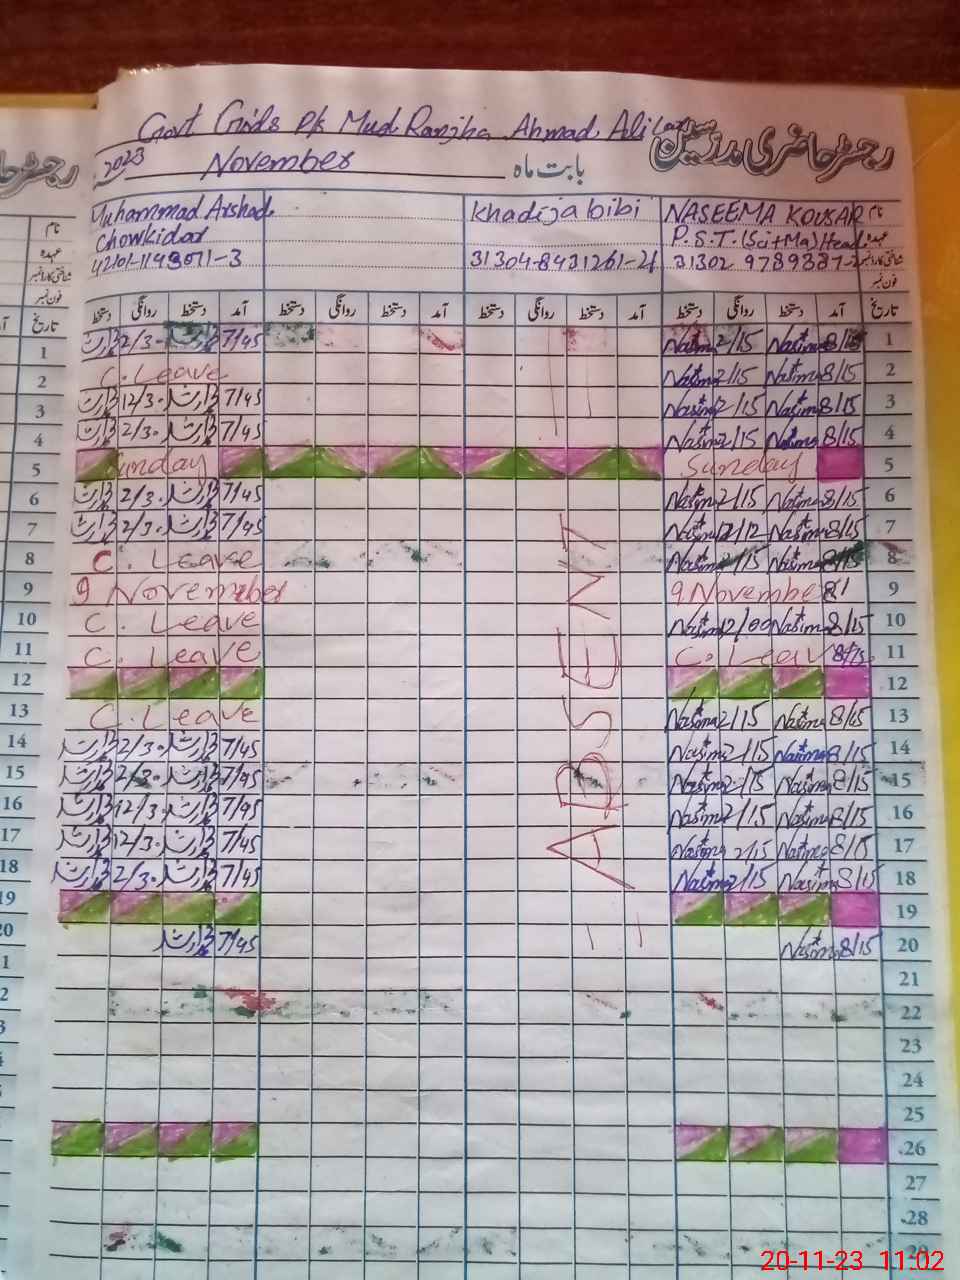 Govt Girls P/s Mud Ranjha Ahmad Ali Lar
رجسٹر حاضری مدرسین
2023 November بابت ماہ
Muhammad Arshad
Khadija bibi
NASEEMA KOUSAR
نام
Chowkidar
P.S.T. (Sci+Ma) Head
عہدہ
31304-8431261-
31302 9789387-
شناختی کارڈ نمبر
فون نمبر
دستخط روانگی دستخط آمد دستخط روانگی دستخط آمد دستخط روانگی دستخط آمد تاریخ
2/30 7/45 Nasima 2/15 Nasima 8/15 1
C. Leave Nasima 2/15 Nasima 8/15 2
12/30 7/45 Nasima 2/15 Nasima 8/15 3
2/30 7/45 Nasima 2/15 Nasima 8/15 4
Sunday Sunday 5
2/30 7/45 Nasima 2/15 Nasima 8/15 6
2/30 7/45 Nasima 12/12 Nasima 8/15 7
C. Leave Nasima 2/15 Nasima 8/15 8
9 November 9 November 9
C. Leave Nasima 12/00 Nasima 8/15 10
C. Leave C. Leave 8/15 11
12
C. Leave Nasima 2/15 Nasima 8/15 13
2/30 7/45 Nasima 2/15 Nasima 8/15 14
2/30 7/45 Nasima 2/15 Nasima 8/15 15
12/30 7/45 Nasima 2/15 Nasima 8/15 16
12/30 7/45 Nasima 2/15 Nasima 8/15 17
2/30 7/45 Nasima 2/15 Nasima 8/15 18
19
7/45 Nasima 8/15 20
ABSENT
21
22
23
24
25
26
27
28
29
20-11-23 11:02